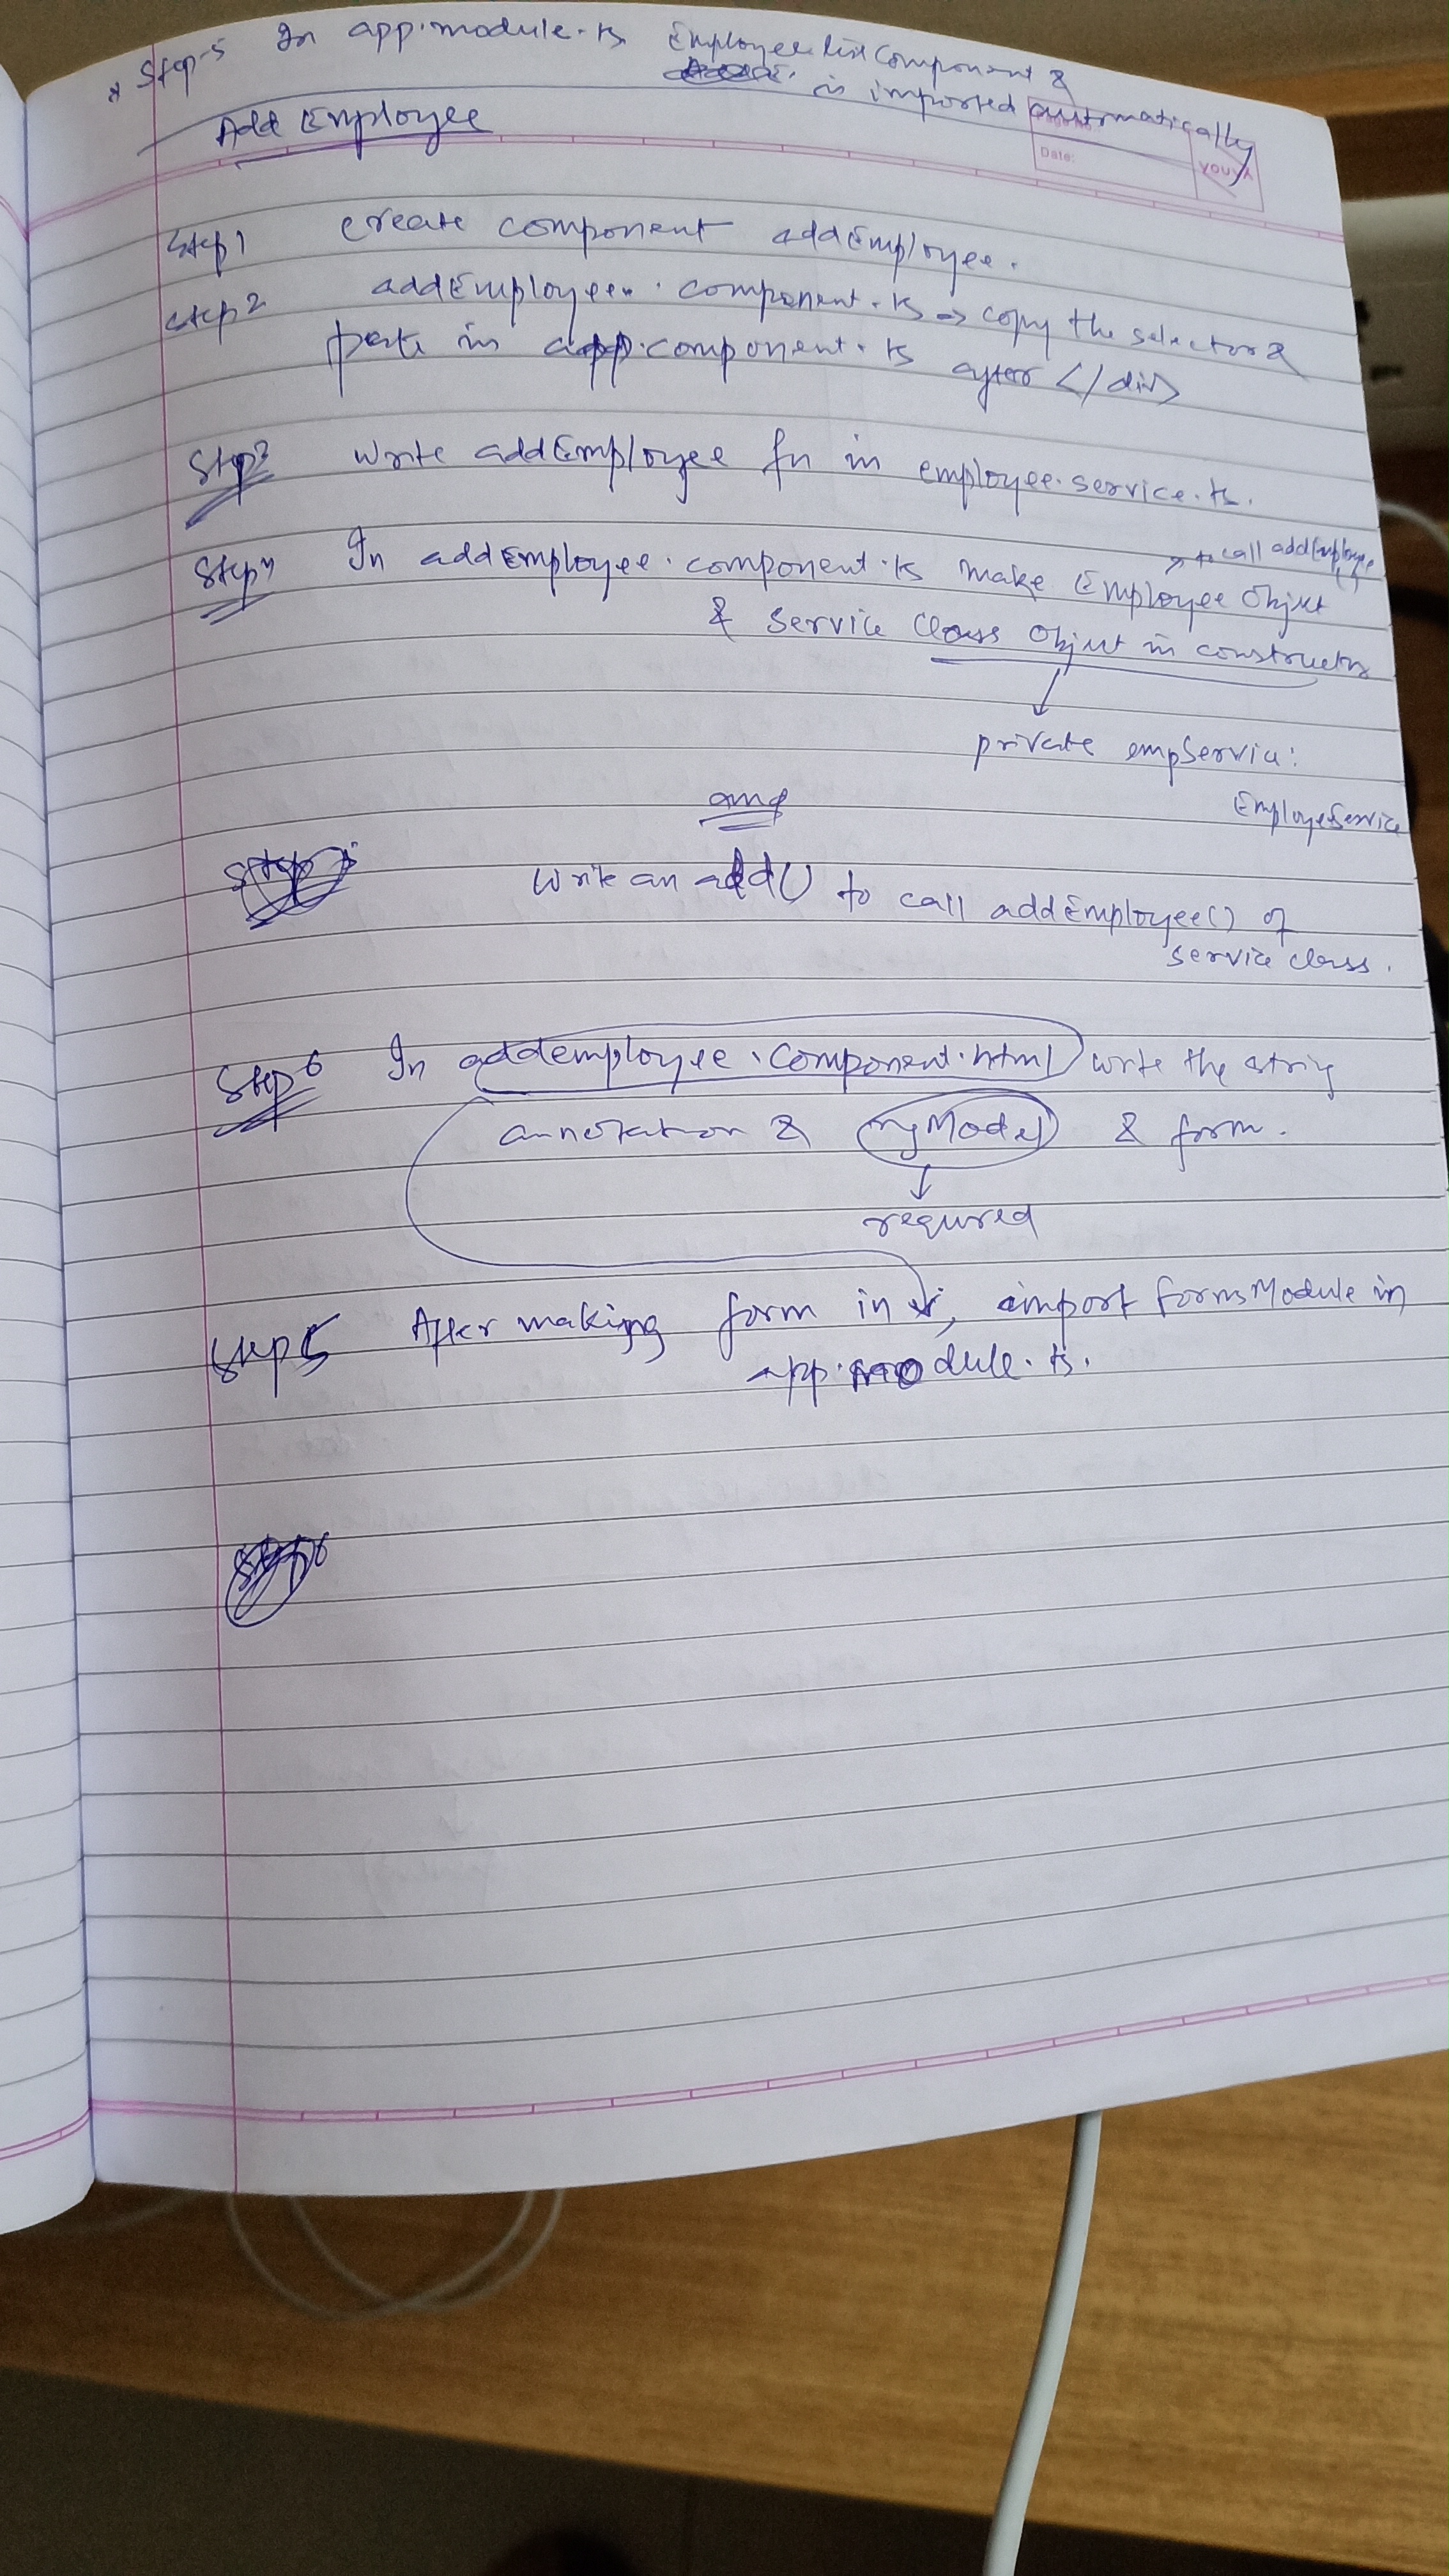 * Step-5 In app.module.ts EmployeelistComponent &
is imported automatically
Add Employee
Date:
YOUVA
Step1 create component addEmployee.
Step2 addEmployee.component.ts → copy the selector &
paste in app.component.ts after </div>
Step3 Write addEmployee fn in employee.service.ts.
Step4 In addEmployee.component.ts make Employee Object
→ to call addEmployee()
& service class Object in constructor
private empService:
EmployeeService
and
Write an add() to call addEmployee() of
service class.
Step6 In addemployee.component.html write the string
annotation & ngModel & form.
required
Step5 After making form in, import FormsModule in
app.module.ts.